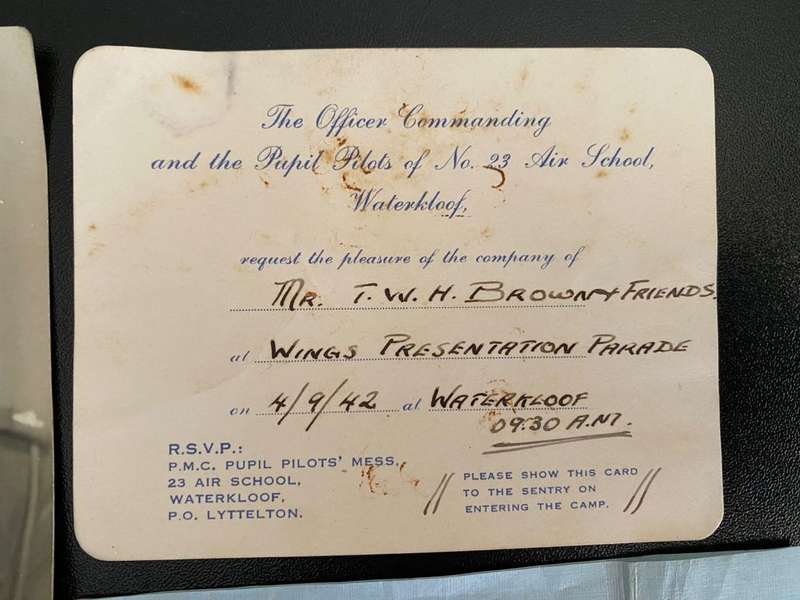 The Officer Commanding
and the Pupil Pilots of No. 23 Air School,
Waterkloof,
request the pleasure of the company of
MR. T. W. H. BROWN + FRIENDS.
at WINGS PRESENTATION PARADE
on 4/9/42 at WATERKLOOF
09:30 A.M.
R.S.V.P.:
P.M.C. PUPIL PILOTS' MESS,
23 AIR SCHOOL,
WATERKLOOF,
P.O. LYTTELTON.
PLEASE SHOW THIS CARD
TO THE SENTRY ON
ENTERING THE CAMP.